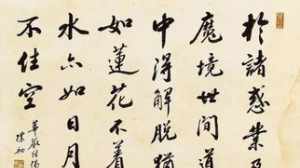 於諸惑業及
魔境世間道
中得解脫猶
如蓮花不着
水亦如日月
不住空
華嚴經偈